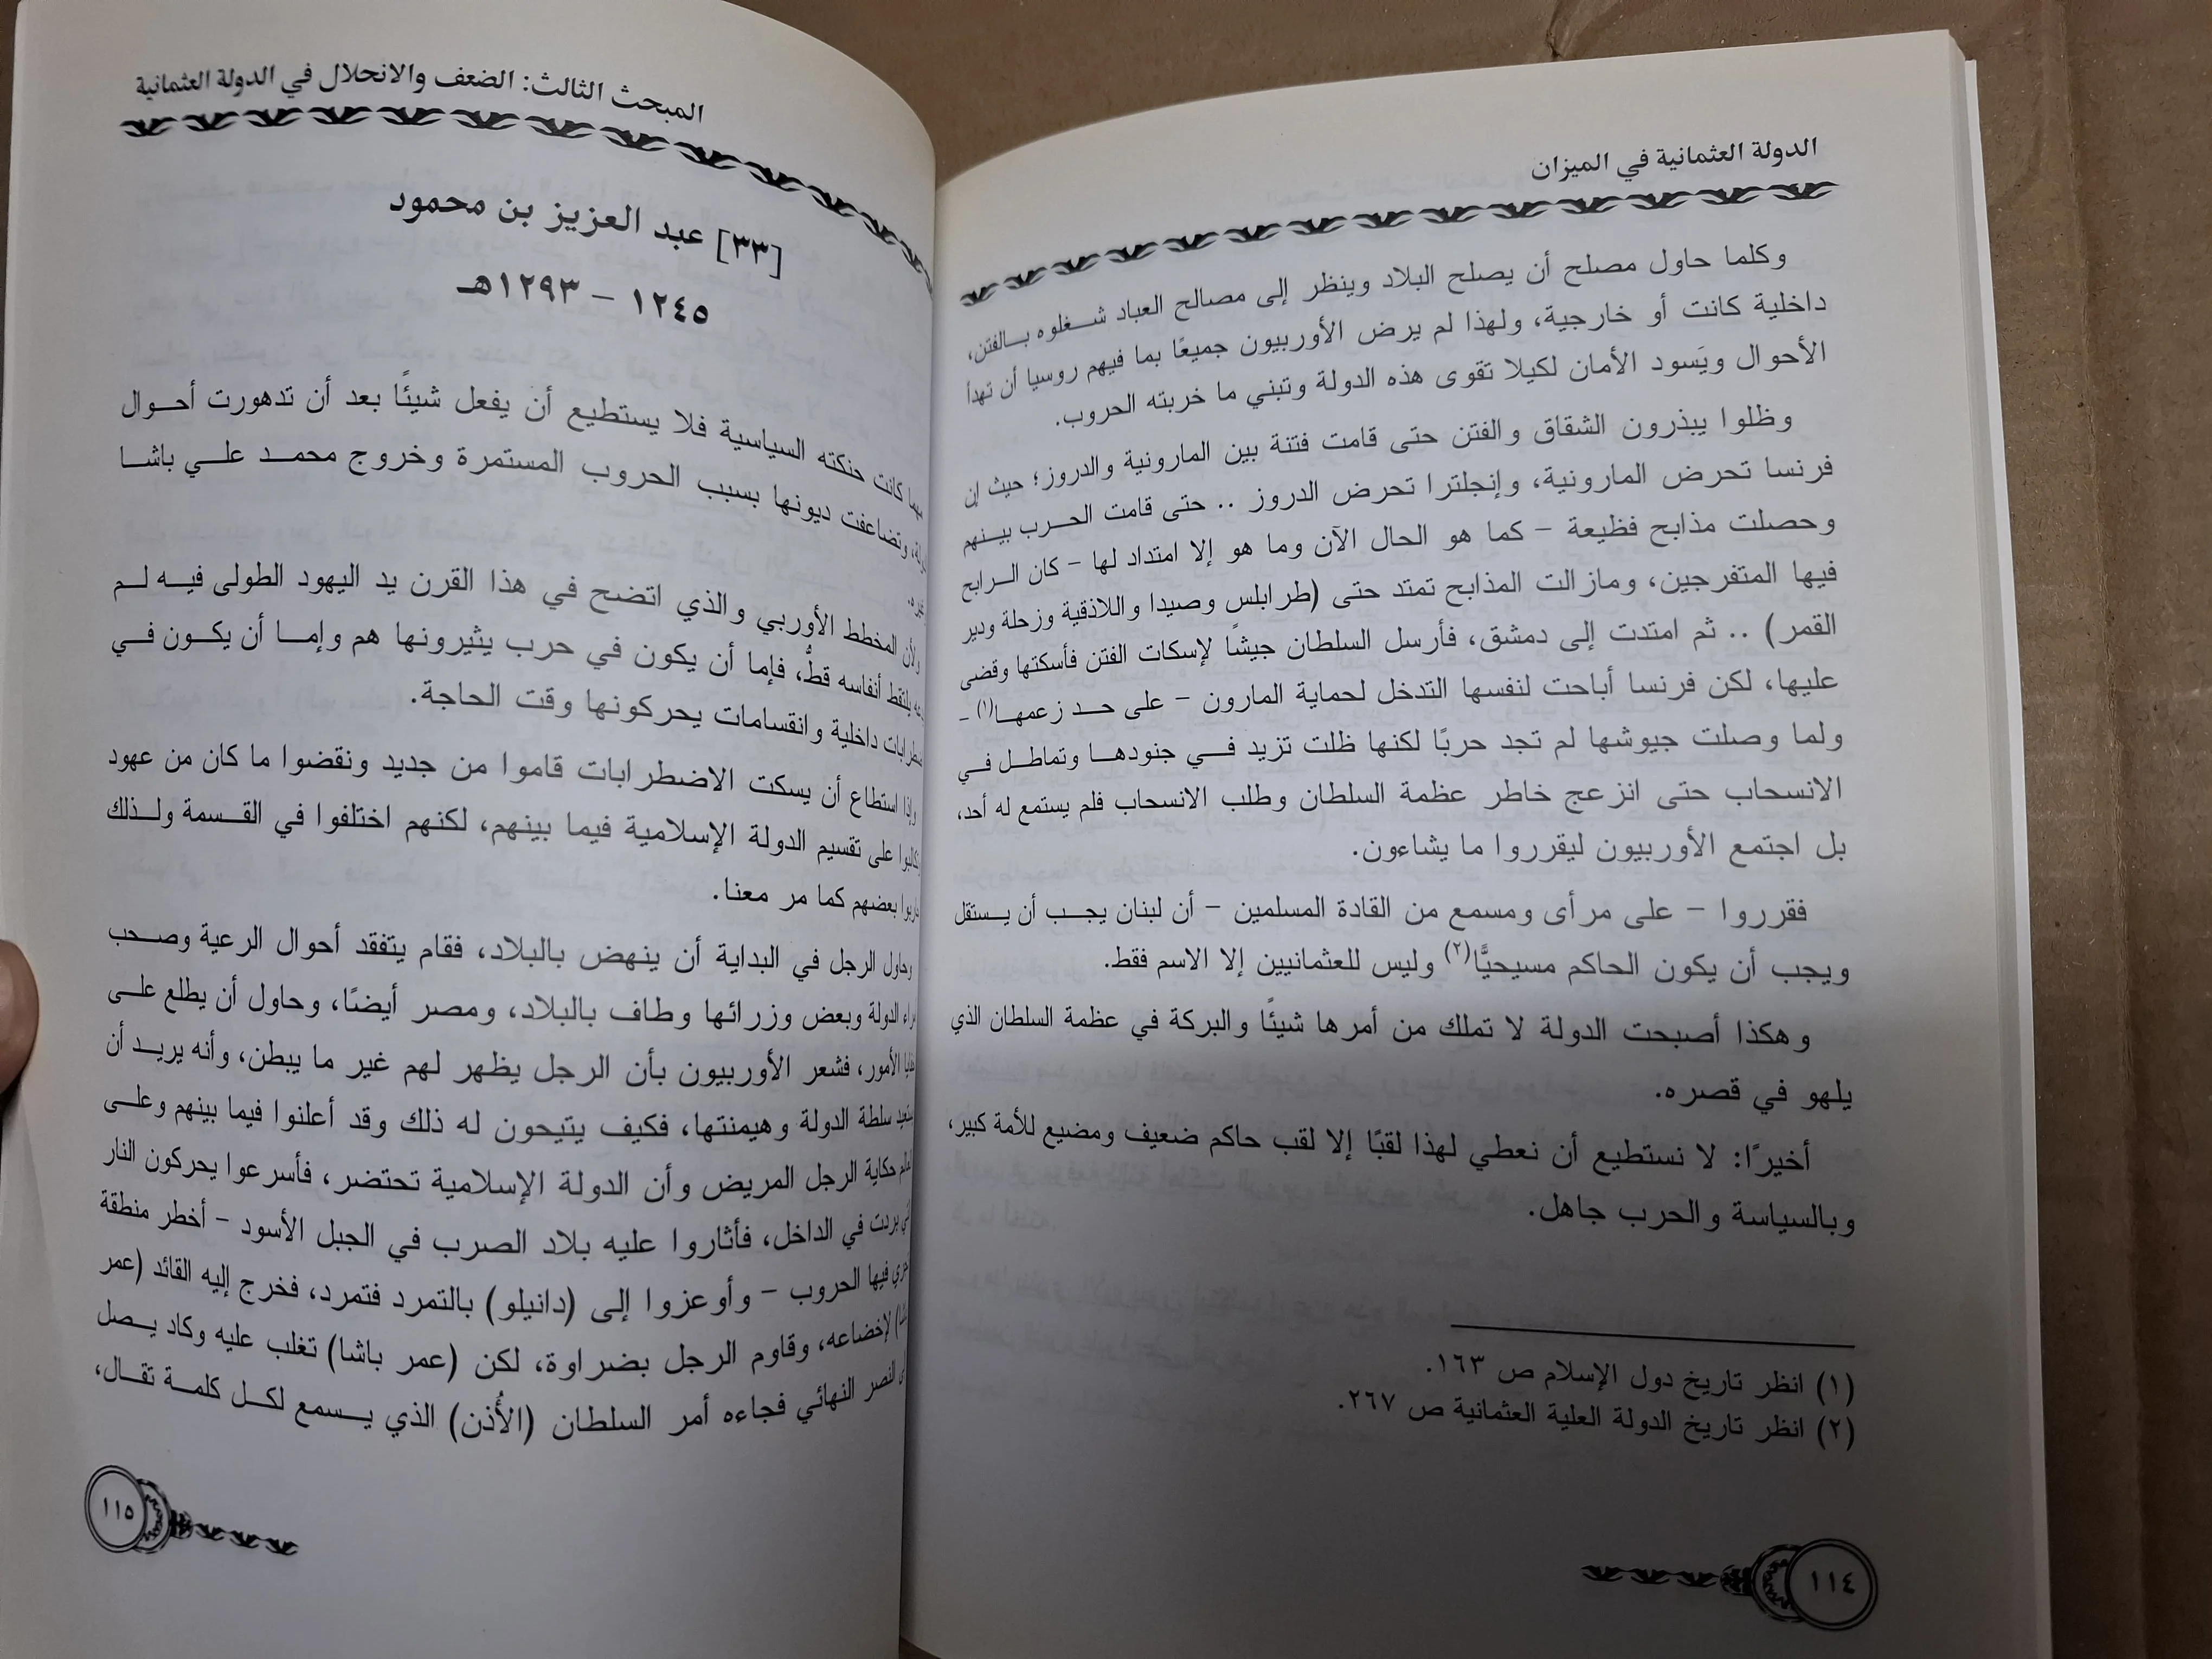 الدولة العثمانية في الميزان
وكلما حاول مصلح أن يصلح البلاد وينظر إلى مصالح العباد شـغلوه بـالفتن،
داخلية كانت أو خارجية، ولهذا لم يرض الأوربيون جميعًا بما فيهم روسيا أن تهدأ
الأحوال ويَسود الأمان لكيلا تقوى هذه الدولة وتبني ما خربته الحروب.
وظلوا يبذرون الشقاق والفتن حتى قامت فتنة بين المارونية والدروز؛ حيث إن
فرنسا تحرض المارونية، وإنجلترا تحرض الدروز .. حتى قامت الحـرب بيـنهم
وحصلت مذابح فظيعة – كما هو الحال الآن وما هو إلا امتداد لها – كان الـرابح
فيها المتفرجين، ومازالت المذابح تمتد حتى (طرابلس وصيدا واللاذقية وزحلة ودير
القمر) .. ثم امتدت إلى دمشق، فأرسل السلطان جيشًا لإسكات الفتن فأسكتها وقضى
عليها، لكن فرنسا أباحت لنفسها التدخل لحماية المارون – على حـد زعمهـا(١) –
ولما وصلت جيوشها لم تجد حربًا لكنها ظلت تزيد فـي جنودهـا وتماطـل فـي
الانسحاب حتى انزعج خاطر عظمة السلطان وطلب الانسحاب فلم يستمع له أحد،
بل اجتمع الأوربيون ليقرروا ما يشاءون.
فقرروا – على مرأى ومسمع من القادة المسلمين – أن لبنان يجـب أن يـستقل
ويجب أن يكون الحاكم مسيحيًّا(٢) وليس للعثمانيين إلا الاسم فقط.
وهكذا أصبحت الدولة لا تملك من أمرها شيئًا والبركة في عظمة السلطان الذي
يلهو في قصره.
أخيرًا: لا نستطيع أن نعطي لهذا لقبًا إلا لقب حاكم ضعيف ومضيع للأمة كبير،
وبالسياسة والحرب جاهل.
(١) انظر تاريخ دول الإسلام ص ١٦٣.
(٢) انظر تاريخ الدولة العلية العثمانية ص ٢٦٧.
١١٤
المبحث الثالث: الضعف والانحلال في الدولة العثمانية
[٣٣] عبد العزيز بن محمود
١٢٤٥ – ١٢٩٣هـ
كانت حنكته السياسية فلا يستطيع أن يفعل شيئًا بعد أن تدهورت أحـوال
وتضاعفت ديونها بسبب الحروب المستمرة وخروج محمـد علـي باشـا
ولأن المخطط الأوربي والذي اتضح في هذا القرن يد اليهود الطولى فيـه لـم
يلتقط أنفاسه قطُّ، فإما أن يكون في حرب يثيرونها هم وإمـا أن يكـون فـي
داخلية وانقسامات يحركونها وقت الحاجة.
وإذا استطاع أن يسكت الاضطرابات قاموا من جديد ونقضوا ما كان من عهود
على تقسيم الدولة الإسلامية فيما بينهم، لكنهم اختلفوا في القـسمة ولـذلك
بعضهم كما مر معنا.
وحاول الرجل في البداية أن ينهض بالبلاد، فقام يتفقد أحوال الرعية وصـحب
الدولة وبعض وزرائها وطاف بالبلاد، ومصر أيضًا، وحاول أن يطلع علـى
الأمور، فشعر الأوربيون بأن الرجل يظهر لهم غير ما يبطن، وأنه يريـد أن
سلطة الدولة وهيمنتها، فكيف يتيحون له ذلك وقد أعلنوا فيما بينهم وعلـى
حكاية الرجل المريض وأن الدولة الإسلامية تحتضر، فأسرعوا يحركون النار
بردت في الداخل، فأثاروا عليه بلاد الصرب في الجبل الأسود – أخطر منطقة
فيها الحروب – وأوعزوا إلى (دانيلو) بالتمرد فتمرد، فخرج إليه القائد (عمر
لإخضاعه، وقاوم الرجل بضراوة، لكن (عمر باشا) تغلب عليه وكاد يـصل
النصر النهائي فجاءه أمر السلطان (الأُذن) الذي يـسمع لكـل كلمـة تقـال،
١١٥